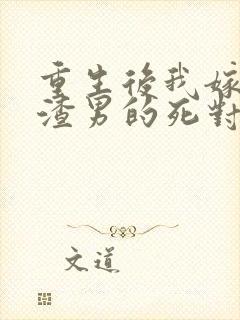 重生後我嫁
渣男的死對
文道